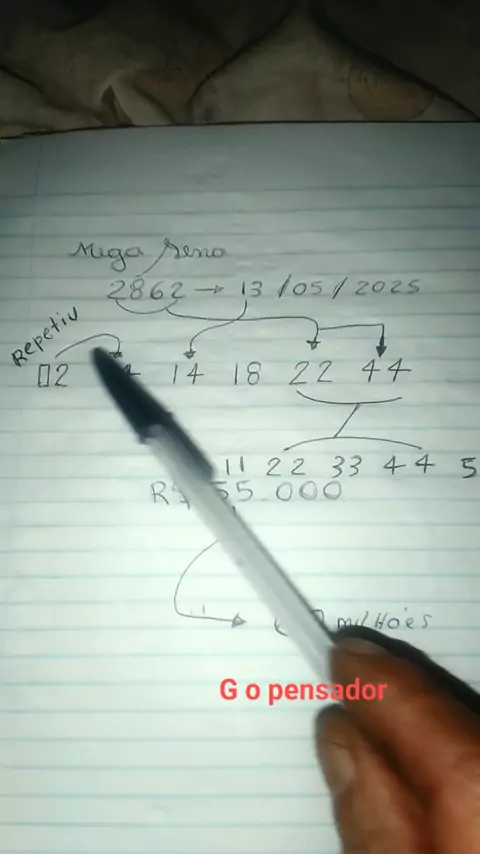 Mega Sena
2862 → 13 /05 / 2025
Repetiu
02 14 18 22 44
11 22 33 44 5
R$ 55.000
milhões
G o pensador